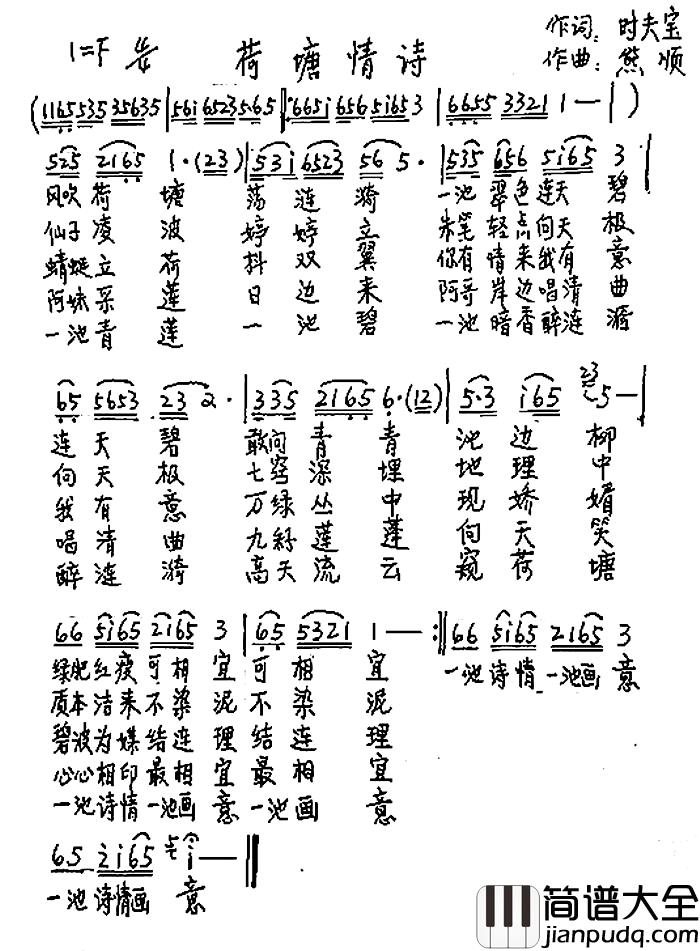 1=F 2/4 荷塘情诗 作词：时夫宝
作曲：熊顺
(1165535 35635 | 56i 6523 5·65 ‖: ·665i 656 5i65 3 | 6655 3321 1 — | )
525 2165 1·(23) | 53i 6523 56 5· | 535 656 5i65 3 |
风吹荷 塘 荡涟漪 一池翠色连天 碧
仙子凌 波 婷婷立 朱笔轻点向天 极
蜻蜓立 荷 抖双翼 你有情来我有 意
阿妹采 莲 日边来 阿哥岸边唱清 曲
一池青 莲 一池碧 一池暗香醉涟 漪
65 5653 23 2· | 335 2165 6·(12) | 5·3 i65 235 — |
连天 碧 敢问青 青 池边 柳
向天 极 七窍深 埋 地理 中
我有 意 万绿丛 中 现娇 媚
唱清 曲 九籽莲 蓬 向天 笑
醉涟 漪 高天流 云 窥荷 塘
66 5i65 2i65 3 | 65 5321 1 — :‖ 66 5i65 2i65 3
绿肥红瘦可相 宜 可相 宜 一池诗情一池画 意
质本洁来不染 泥 不染 泥
碧波为媒结连 理 结连 理
心心相印最相 宜 最相 宜
一池诗情一池画 意 一池画 意
65 2i65 i — ‖
一池诗情画 意
简谱大全
jianpudq.com